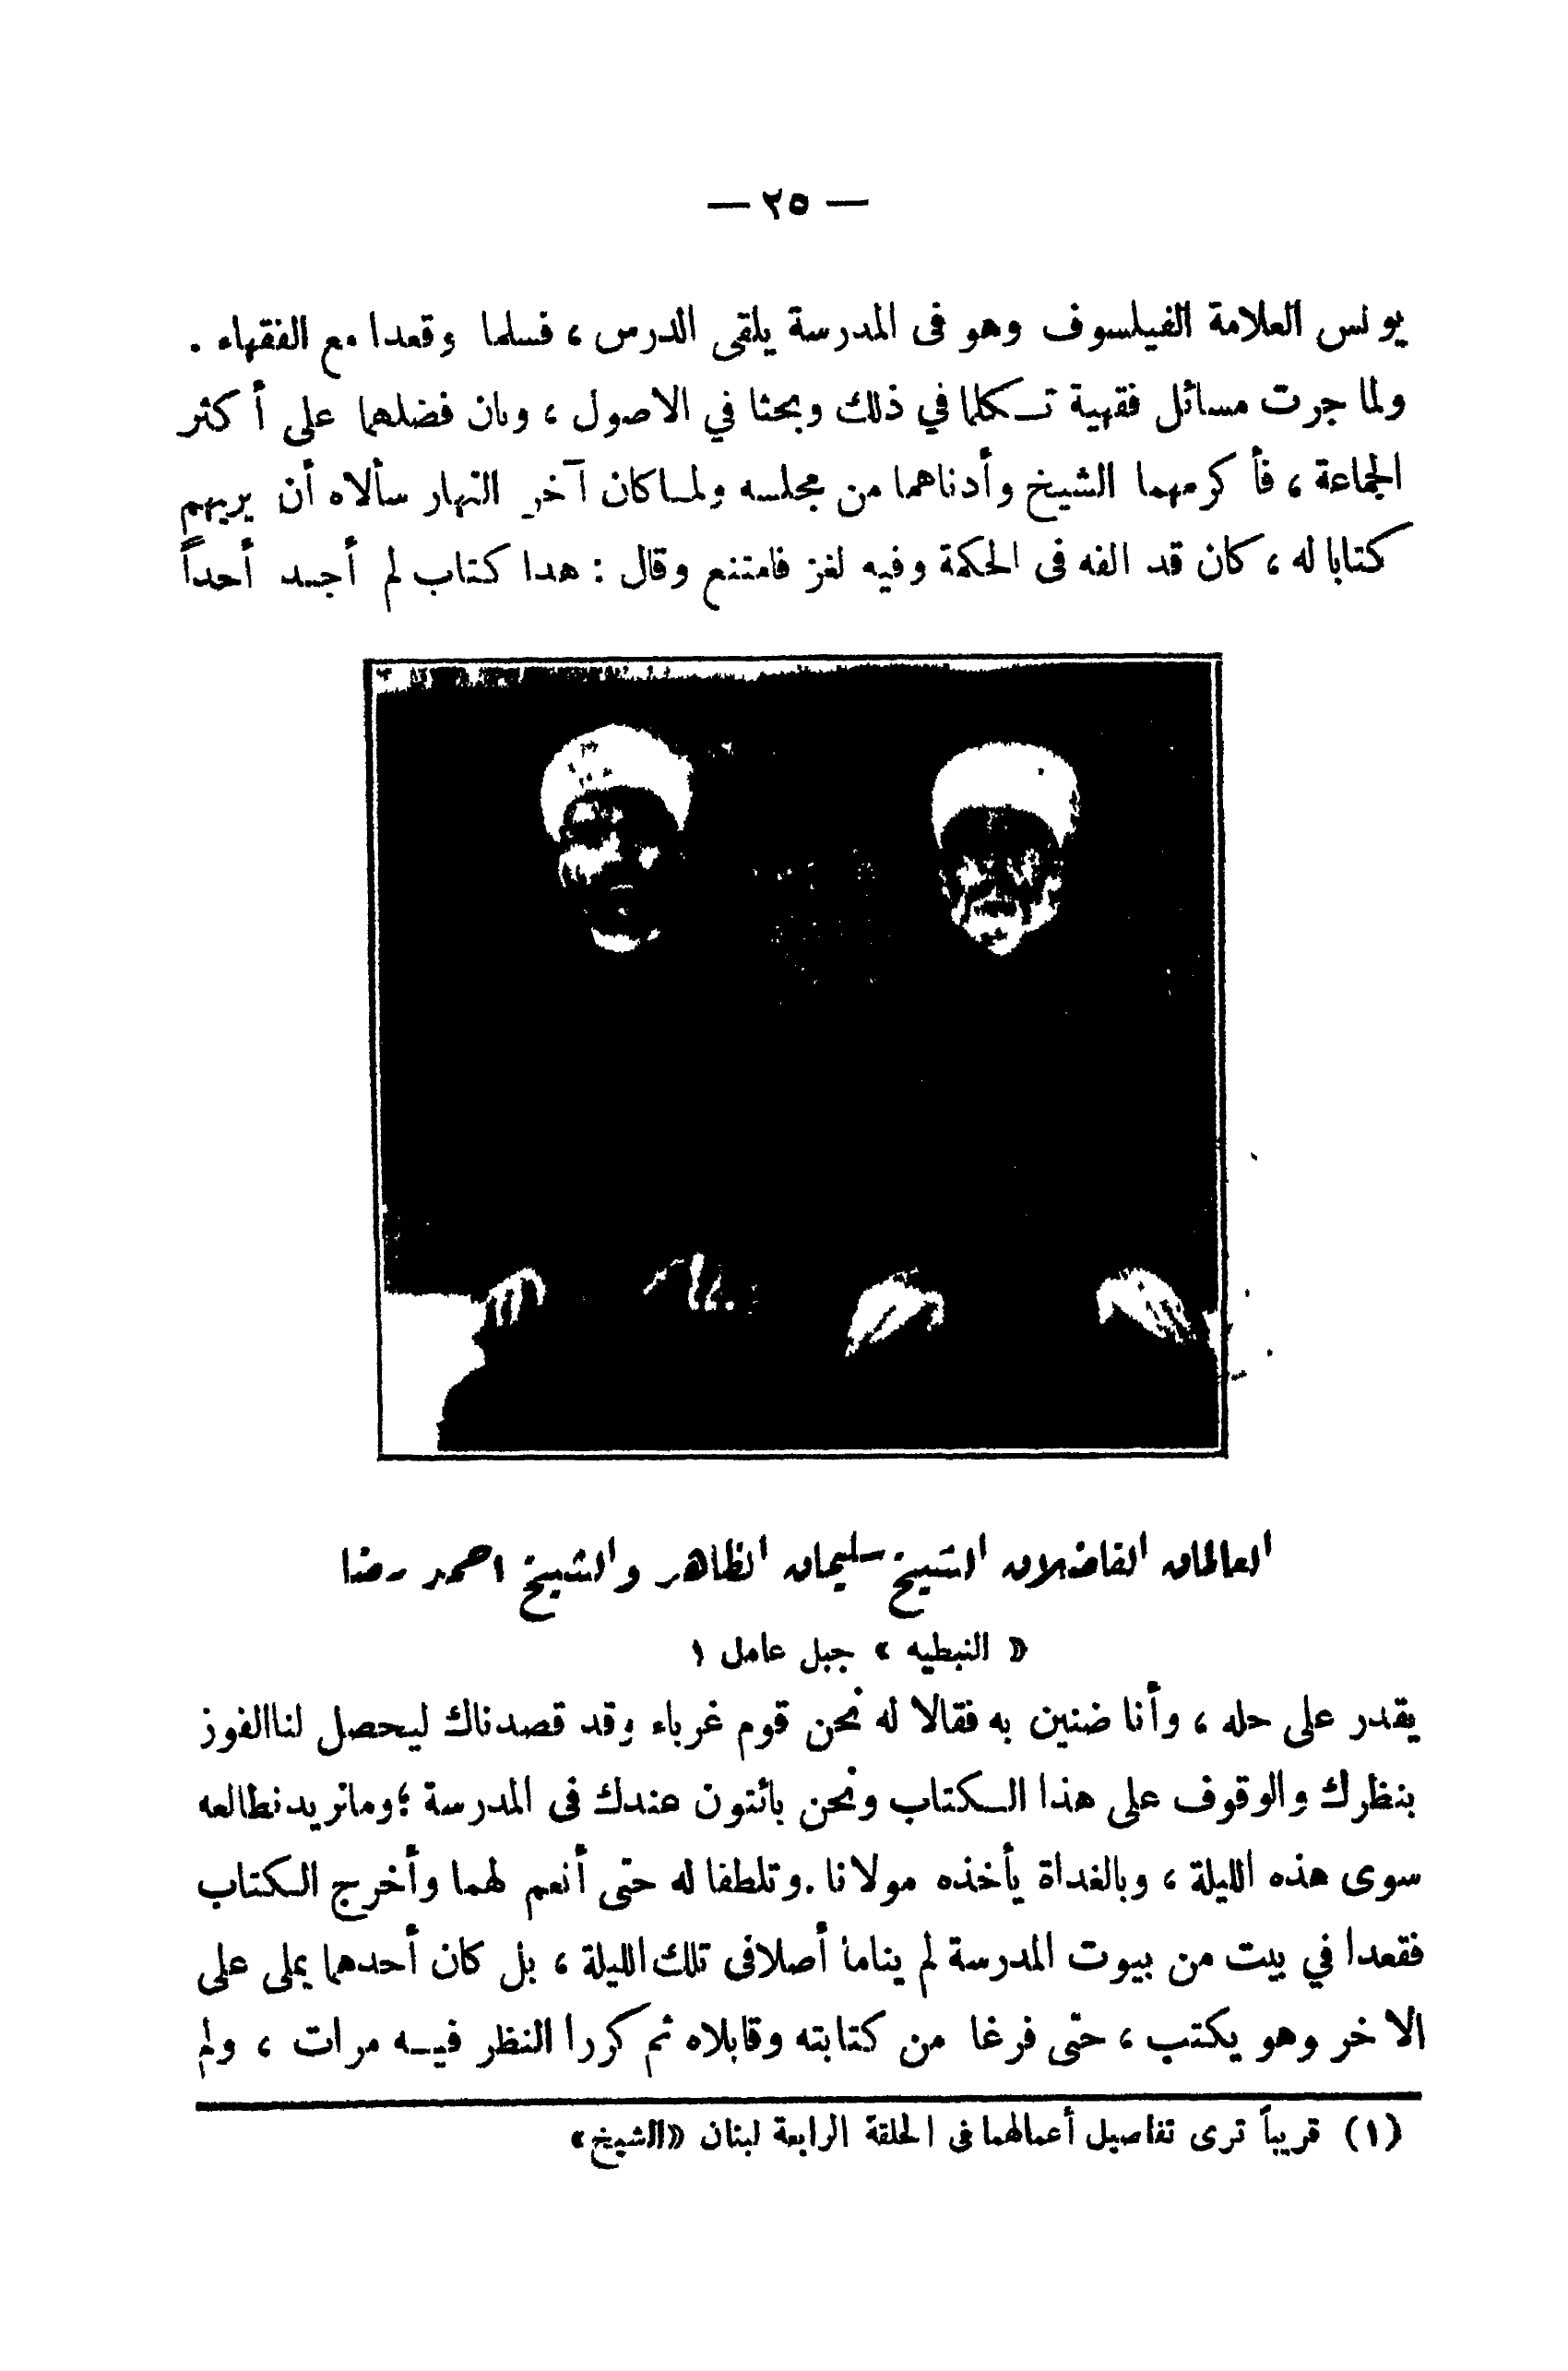 — ٢٥ —
يونس العلامة الفيلسوف وهو فى المدرسة يلقى الدرس ، فسلما وقعدا مع الفقهاء .
ولما جرت مسائل فقهية تـكلما في ذلك وبحثا في الاصول ، وبان فضلهما على أكثر
الجماعة ، فأكرمهما الشيخ وأدناهما من مجلسه ولمـاكان آخر النهار سألاه أن يريهم
كتابا له ، كان قد الفه فى الحكمة وفيه لغز فامتنع وقال : هدا كتاب لم أجـد أحداً
العالمان الفاضلان الشيخ سليمان الظاهر والشيخ احمد رضا
« النبطيه » جبل عامل ١
يقدر على حله ، وأنا ضنين به فقالا له نحن قوم غرباء وقد قصدناك ليحصل لناالفوز
بنظرك والوقوف على هذا الـكتاب ونحن بائتون عندك فى المدرسة ؛ومانريد نطالعه
سوى هذه الليلة ، وبالغداة يأخذه مولانا .وتلطفا له حتى أنعم لهما وأخرج الـكتاب
فقعدا في بيت من بيوت المدرسة لم يناما أصلافى تلك الليلة ، بل كان أحدهما يملى على
الاخر وهو يكتب ، حتى فرغا من كتابته وقابلاه ثم كررا النظر فيـه مرات ، ولم
(١) قريباً ترى تفاصيل أعمالهما فى الحلقة الرابعة لبنان «الشيخ»